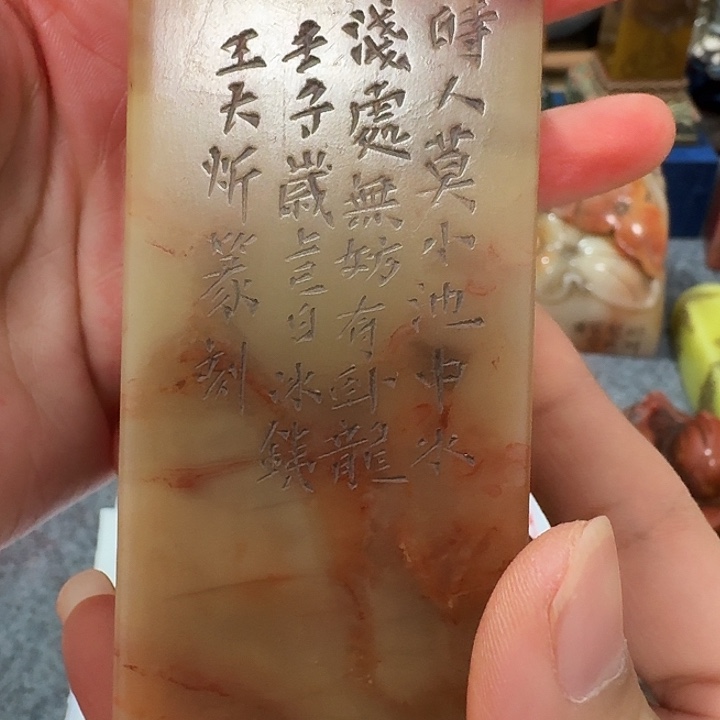 時人莫小池中水
淺處無妨有卧龍
壬子歲上巳日冰鐵
王大炘篆刻